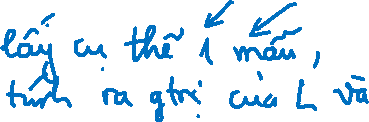 lấy cụ thể 1 mẫu,
tính ra gtrị của L và